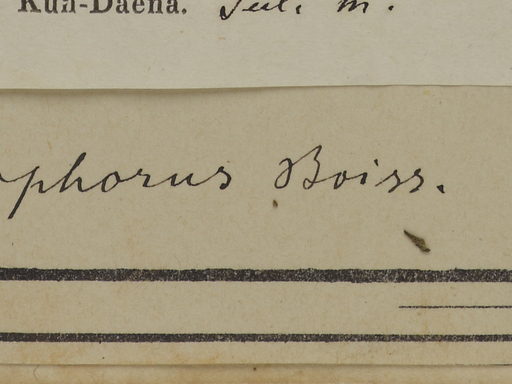 Kuh-Daëna. Jul. m.
ophorus Boiss.